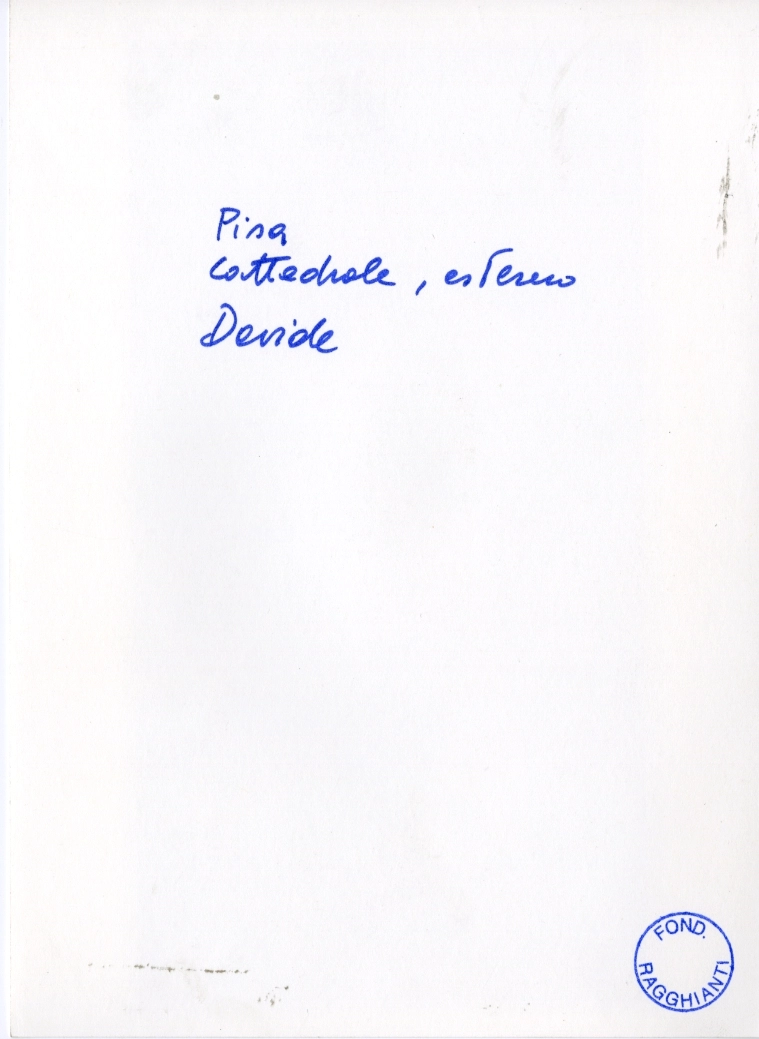 Pisa
Cattedrale, esterno
Davide
FOND.
RAGGHIANTI